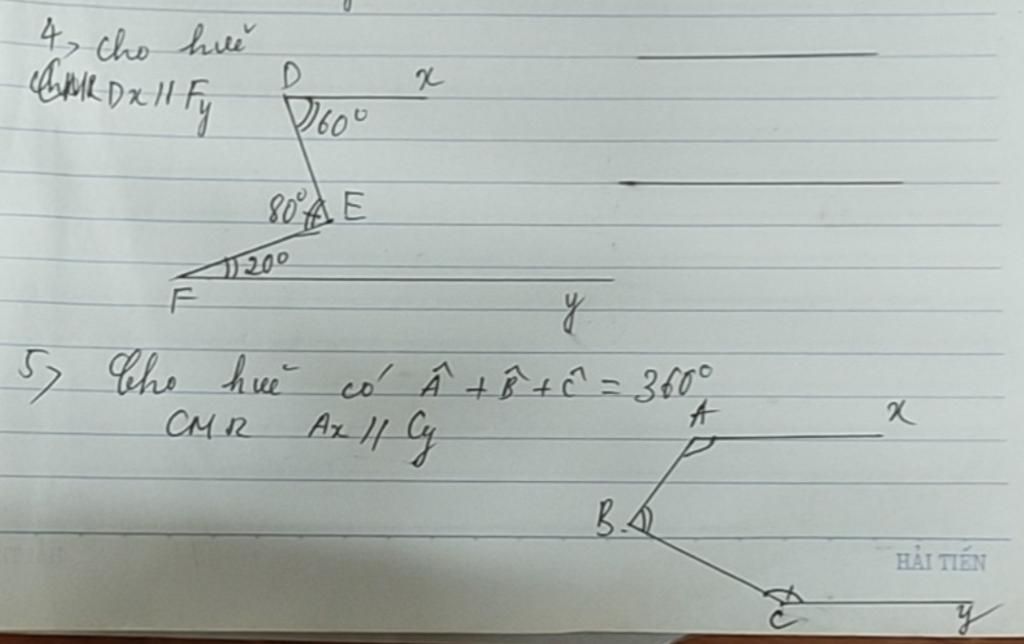 4, Cho hvẽ
CMR Dx // Fy
D x
60°
80° E
20°
F y
5, Cho hvẽ có Â + B̂ + Ĉ = 360°
CMR Ax // Cy
A x
B
HẢI TIẾN
C y